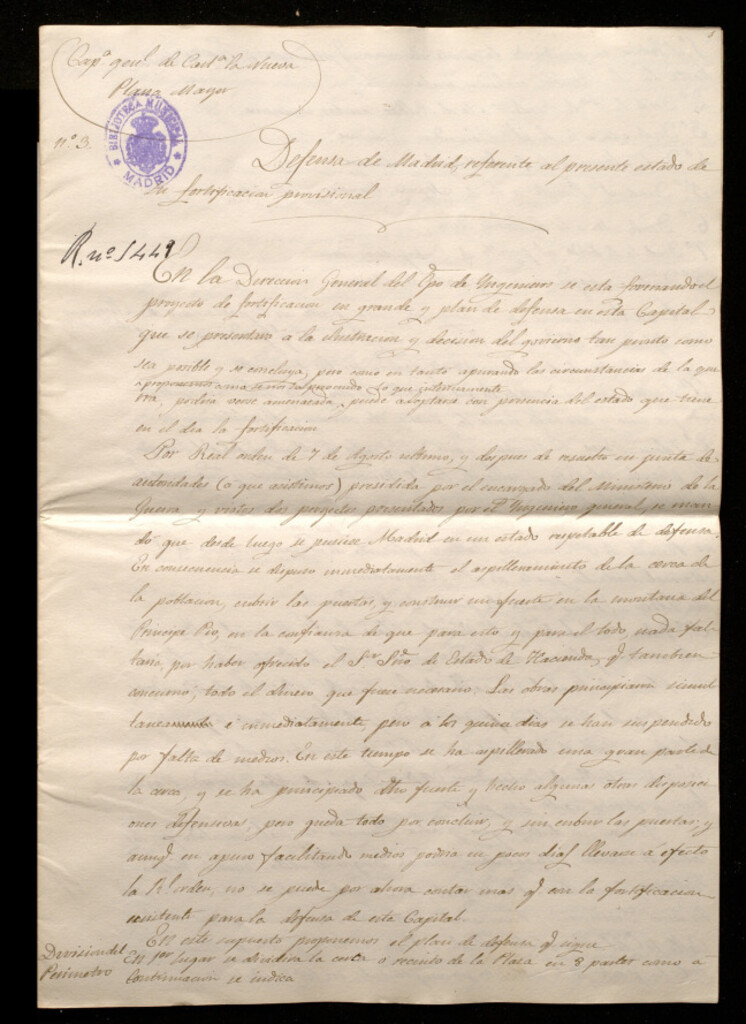 Cap.ª gen.l de Cast.ª la Nueva
Plana Mayor
n.º 3.
BIBLIOTECA MUNICIPAL
MADRID
Defensa de Madrid, referente al presente estado de
su fortificacion provisional
R. nº 1449
En la Direccion General del Cpo de Ingenieros se esta formando el
proyecto de fortificacion en grande y plan de defensa en esta Capital
que se presentará á la ilustracion y decision del govierno tan pronto como
sea posible y se concluya, pero como en tanto apurando las circunstancias de la que
proponemos lo que interinamente
ora, podria verse amenazada, puede adoptarse con presencia del estado que tiene
en el dia la fortificacion
Por Real orden de 7 de Agosto ultimo, y despues de resuelto en junta de
autoridades (á que asistimos) presidida por el encargado del Ministerio de la
Guerra y vistos dos proyectos presentados por el Ingeniero general, se man
dó que desde luego se pusiese Madrid en un estado respetable de defensa.
En consecuencia se dispuso inmediatamente el aspilleramiento de la cerca de
la poblacion, cubrir las puertas, y construir un fuerte en la montaña del
Principe Pio, en la confianza de que para esto y para el todo, nada fal-
taria, por haber ofrecido el Sr. Srio de Estado de Hacienda, q.e tambien
concurrio, todo el dinero que fuese necesario. Las obras principiaron simul
taneamente é inmediatamente, pero á los quince dias se han suspendido
por falta de medios. En este tiempo se ha aspillerado una gran parte de
la cerca, y se ha principiado dho fuerte y hecho algunas otras disposici
ones defensivas, pero queda todo por concluir, y sin cubrir las puertas; y
aunq.e en apuro facilitando medios podria en pocos dias llevarse á efecto
la Rl. orden, no se puede por ahora contar mas q.e con la fortificacion
existente para la defensa de esta Capital.
En este supuesto proponemos el plan de defensa q.e sigue
Division del
Perimetro
En 1er lugar se dividira la cerca ó recinto de la Plaza en 8 partes como á
continuacion se indica